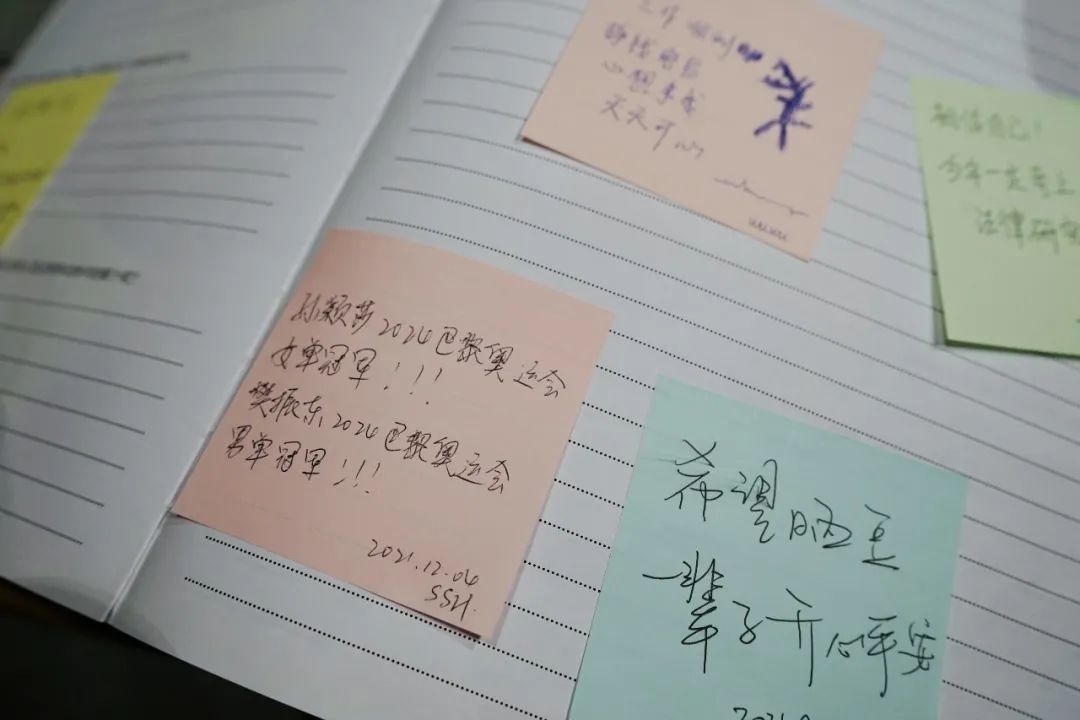 工作顺利
静待花后
心想事成
天天开心
xuxu
相信自己！
今年一定考上
法律研究
孙颖莎2024巴黎奥运会
女单冠军！！！
樊振东2024巴黎奥运会
男单冠军！！！
2021.12.04
SSH.
希望晒豆
一辈子开心平安